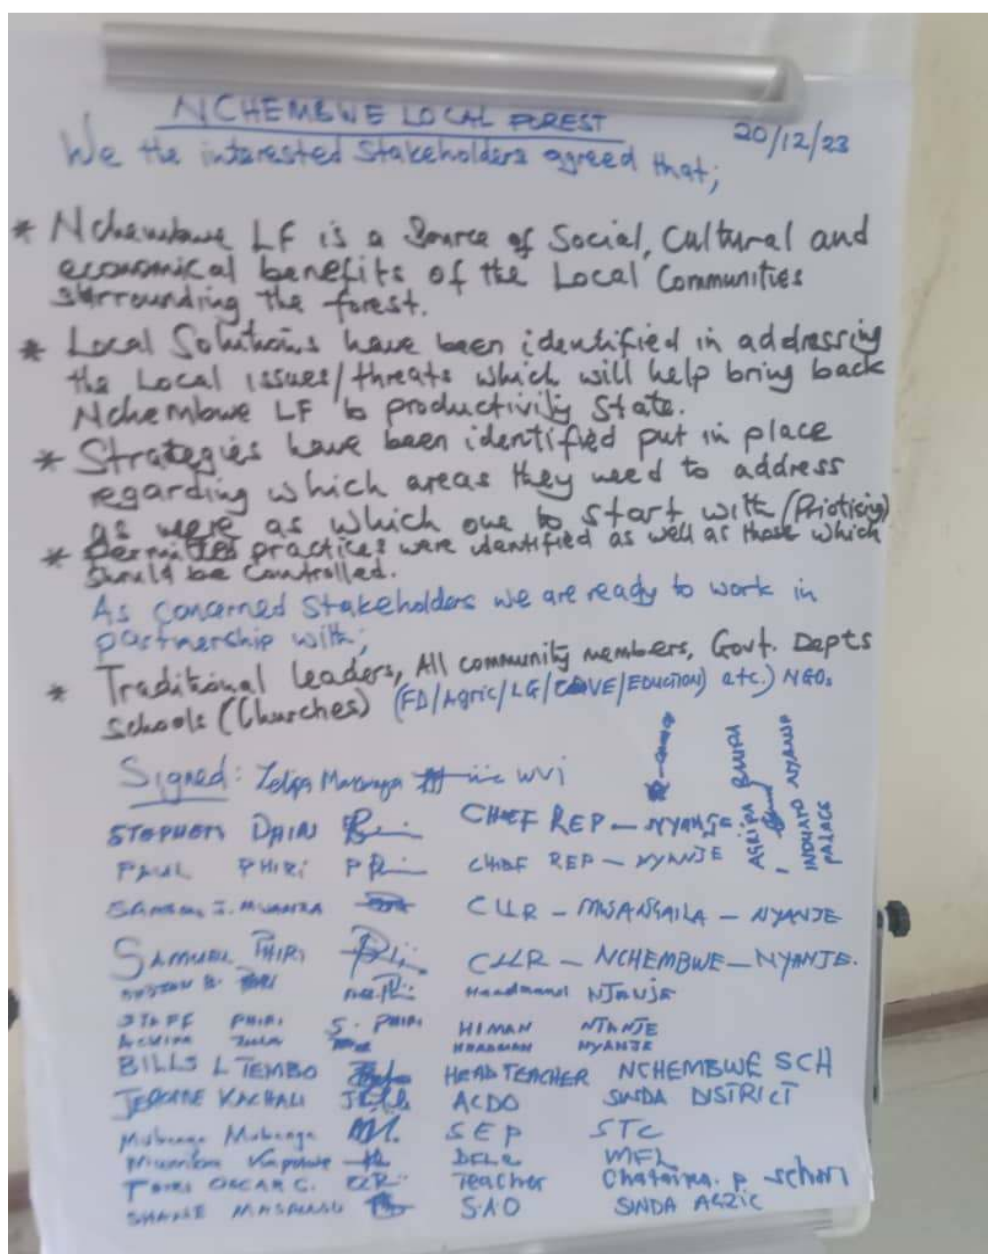 NCHEMBWE LOCAL FOREST
20/12/23
We the interested Stakeholders agreed that;
* Nchembwe LF is a Source of Social, Cultural and
economical benefits of the Local Communities
surrounding the forest.
* Local Solutions have been identified in addressing
the Local issues/threats which will help bring back
Nchembwe LF to productivity State.
* Strategies have been identified put in place
regarding which areas they need to address
as were as which one to start with (Priotising)
* Permitted practices were identified as well as those which
should be controlled.
As concerned Stakeholders we are ready to work in
partnership with;
* Traditional leaders, All community members, Govt. Depts
Schools (Churches) (FD/Agric/LG/ /EDUCTION) etc.) NGOs
Signed: WVI
STEPHEN CHIEF REP - NYANJE
PAUL PHIRI CHIEF REP - NYANJE
CLLR - NYANJE
SAMUEL PHIRI CLLR - NCHEMBWE - NYANJE.
PHIRI Headman NJANJE
PHIRI S. PHIRI H/MAN NYANJE
ZULU HEADMAN NYANJE
BILLS L TEMBO HEADTEACHER NCHEMBWE SCH
JEROME KACHALI ACDO SINDA DISTRICT
Mubanga Mubanga SEP STC
WFL
OSCAR C. Teacher p school
SAO SINDA AGRIC
PALACE